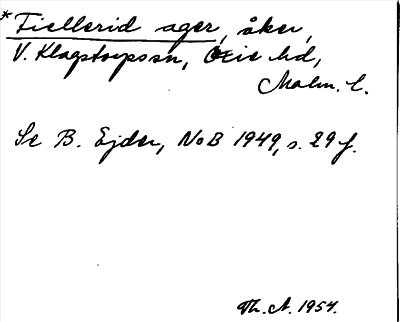 *Fiellerid ager, åker,
V. Klagstorps sn, Oxie hd,
Malm. l.
Se B. Ejder, NoB 1949, s. 29 f.
Th. A. 1954.